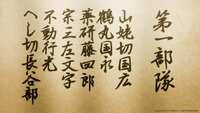 第一部隊
山姥切国広
鶴丸国永
薬研藤四郎
宗三左文字
不動行光
へし切長谷部